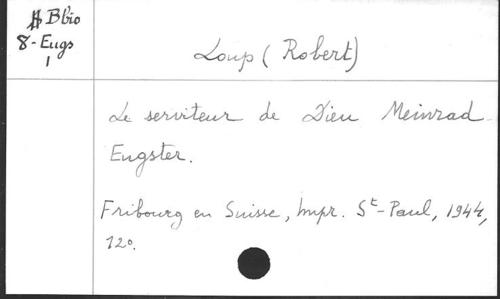 # Bbio
8-Eugs
1
Loup (Robert)
Le serviteur de Dieu Meinrad
Eugster.
Fribourg en Suisse, Impr. St-Paul, 1944,
12°.